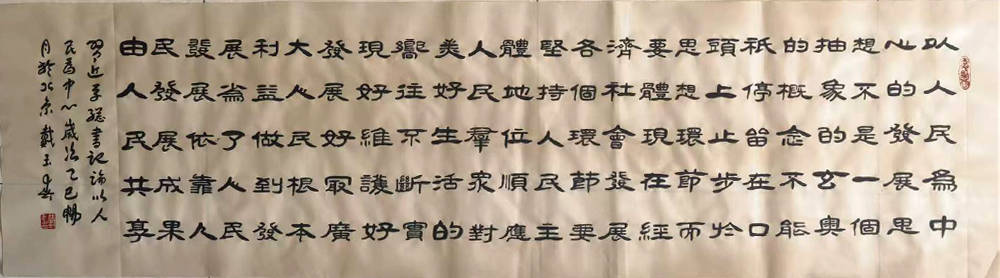 以人民為中
心的發展思
想不是一個
抽象的玄奥
的概念不能
祇停留在口
頭上止步於
思想環節而
要體現在經
濟社會發展
各個環節要
堅持人民主
體地位順應
人民羣衆對
美好生活的
嚮往不斷實
現好維護好
發展好最廣
大人民根本
利益做到發
展為了人民
發展依靠人
民發展成果
由人民共享
習近平總書記論以人
民為中心歲次乙巳暢
月於北京戴玉